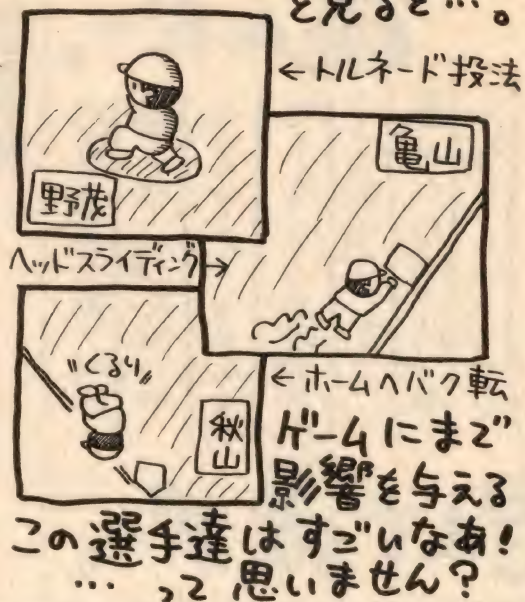 と見ると…。
←トルネード投法
野茂
亀山
ヘッドスライディング→
"くるり"
秋山
←ホームへバク転
ゲームにまで
影響を与える
この選手達はすごいなあ！
…って思いません？